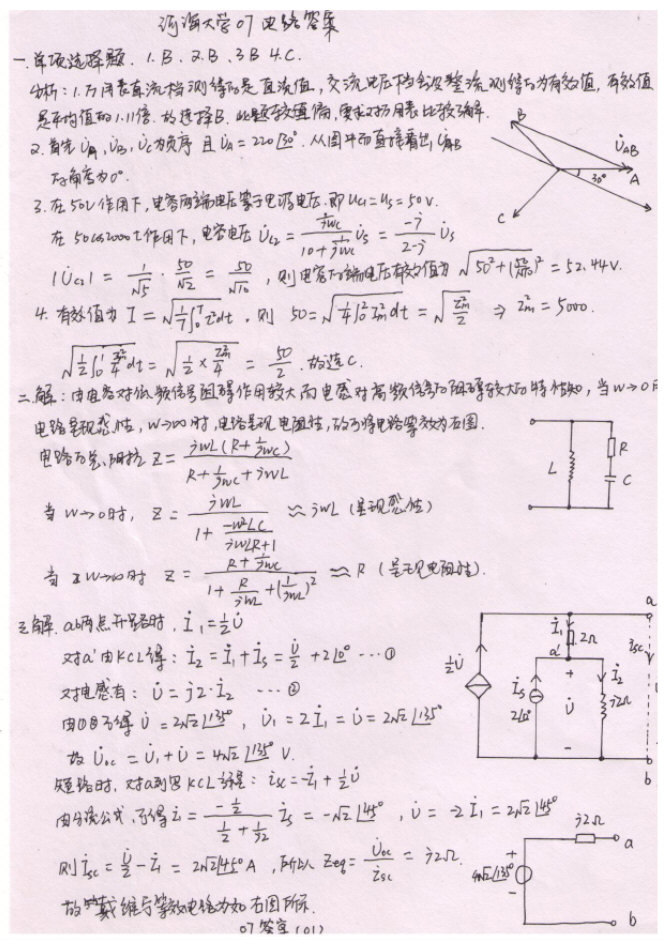 河海大学07电路答案
一.单项选择题. 1.B. 2.B. 3.B 4.C.
分析: 1.万用表直流档测得的是直流值, 交流电压档会没整流测得的为有效值, 有效值
是平均值的1.11倍. 故选择B. 此题较偏, 要求对万用表比较了解.
2. 首先 U̇A, U̇B, U̇C为顺序 且 U̇A = 220∠30°. 从图中可直接看出 U̇AB
的角度为0°.
3. 在50V作用下, 电容两端电压等于电源电压. 即 Uc1 = Us = 50V.
在50cos2000t作用下, 电容电压 U̇c2 = (1/jwc)/(10+1/jwc) U̇s = -j/(2-j) U̇s
|U̇c2| = 1/√5 · 50/√2 = 50/√10, 则电容两端电压有效值为 √(50²+(50/√10)²) = 52.44V.
4. 有效值为 I = √(1/T∫₀ᵀ i²dt), 则 50 = √(1/4∫₀² I²m dt) = √(I²m/2) ⇒ I²m = 5000.
√(1/2∫₀¹ I²m/4 dt) = √(1/2 × I²m/4) = 50/2. 故选C.
二.解: 由电容对低频信号阻碍作用较大而电感对高频信号的阻碍较大的特性知, 当w→0时
电路呈现感性, w→∞时, 电路呈现电阻性, 故可将电路等效为右图.
电路的总阻抗 Z = jwL(R+1/jwc)/(R+1/jwc+jwL)
当w→0时, Z = jwL/(1+(-w²LC)/(jwLR+1)) ≈ jwL (呈现感性)
当 w→∞时 Z = (R+1/jwc)/(1+R/jwL+(1/jwL)²) ≈ R (呈现电阻性).
三.解. ab两点开路时, İ1 = ½U̇
对a'由KCL得: İ2 = İ1 + İs = U̇/2 + 2∠0° … ①
对电感有: U̇ = j2·İ2 … ②
由①②可得 U̇ = 2√2∠135°, U̇1 = 2İ1 = U̇ = 2√2∠135°
故 U̇oc = U̇1 + U̇ = 4√2∠135° V.
短路时, 对a列写KCL方程: i̇sc = -İ1 + ½U̇
由分流公式, 可得 İ = (-½)/(½+1/j2) İs = -√2∠45°, U̇ = -2İ1 = 2√2∠45°
则 İsc = U̇/2 - İ1 = 2√2∠45° A, 所以 Zeq = U̇oc/İsc = j2Ω.
故戴维宁等效电路为如右图所示.
07答案(01)
B
U̇AB
30°
A
C
L
R
C
a
½U̇
İ1
2Ω
a'
İs
2∠0°
+
U̇
-
İ2
j2Ω
Isc
b
j2Ω
a
+
4√2∠135°
-
b